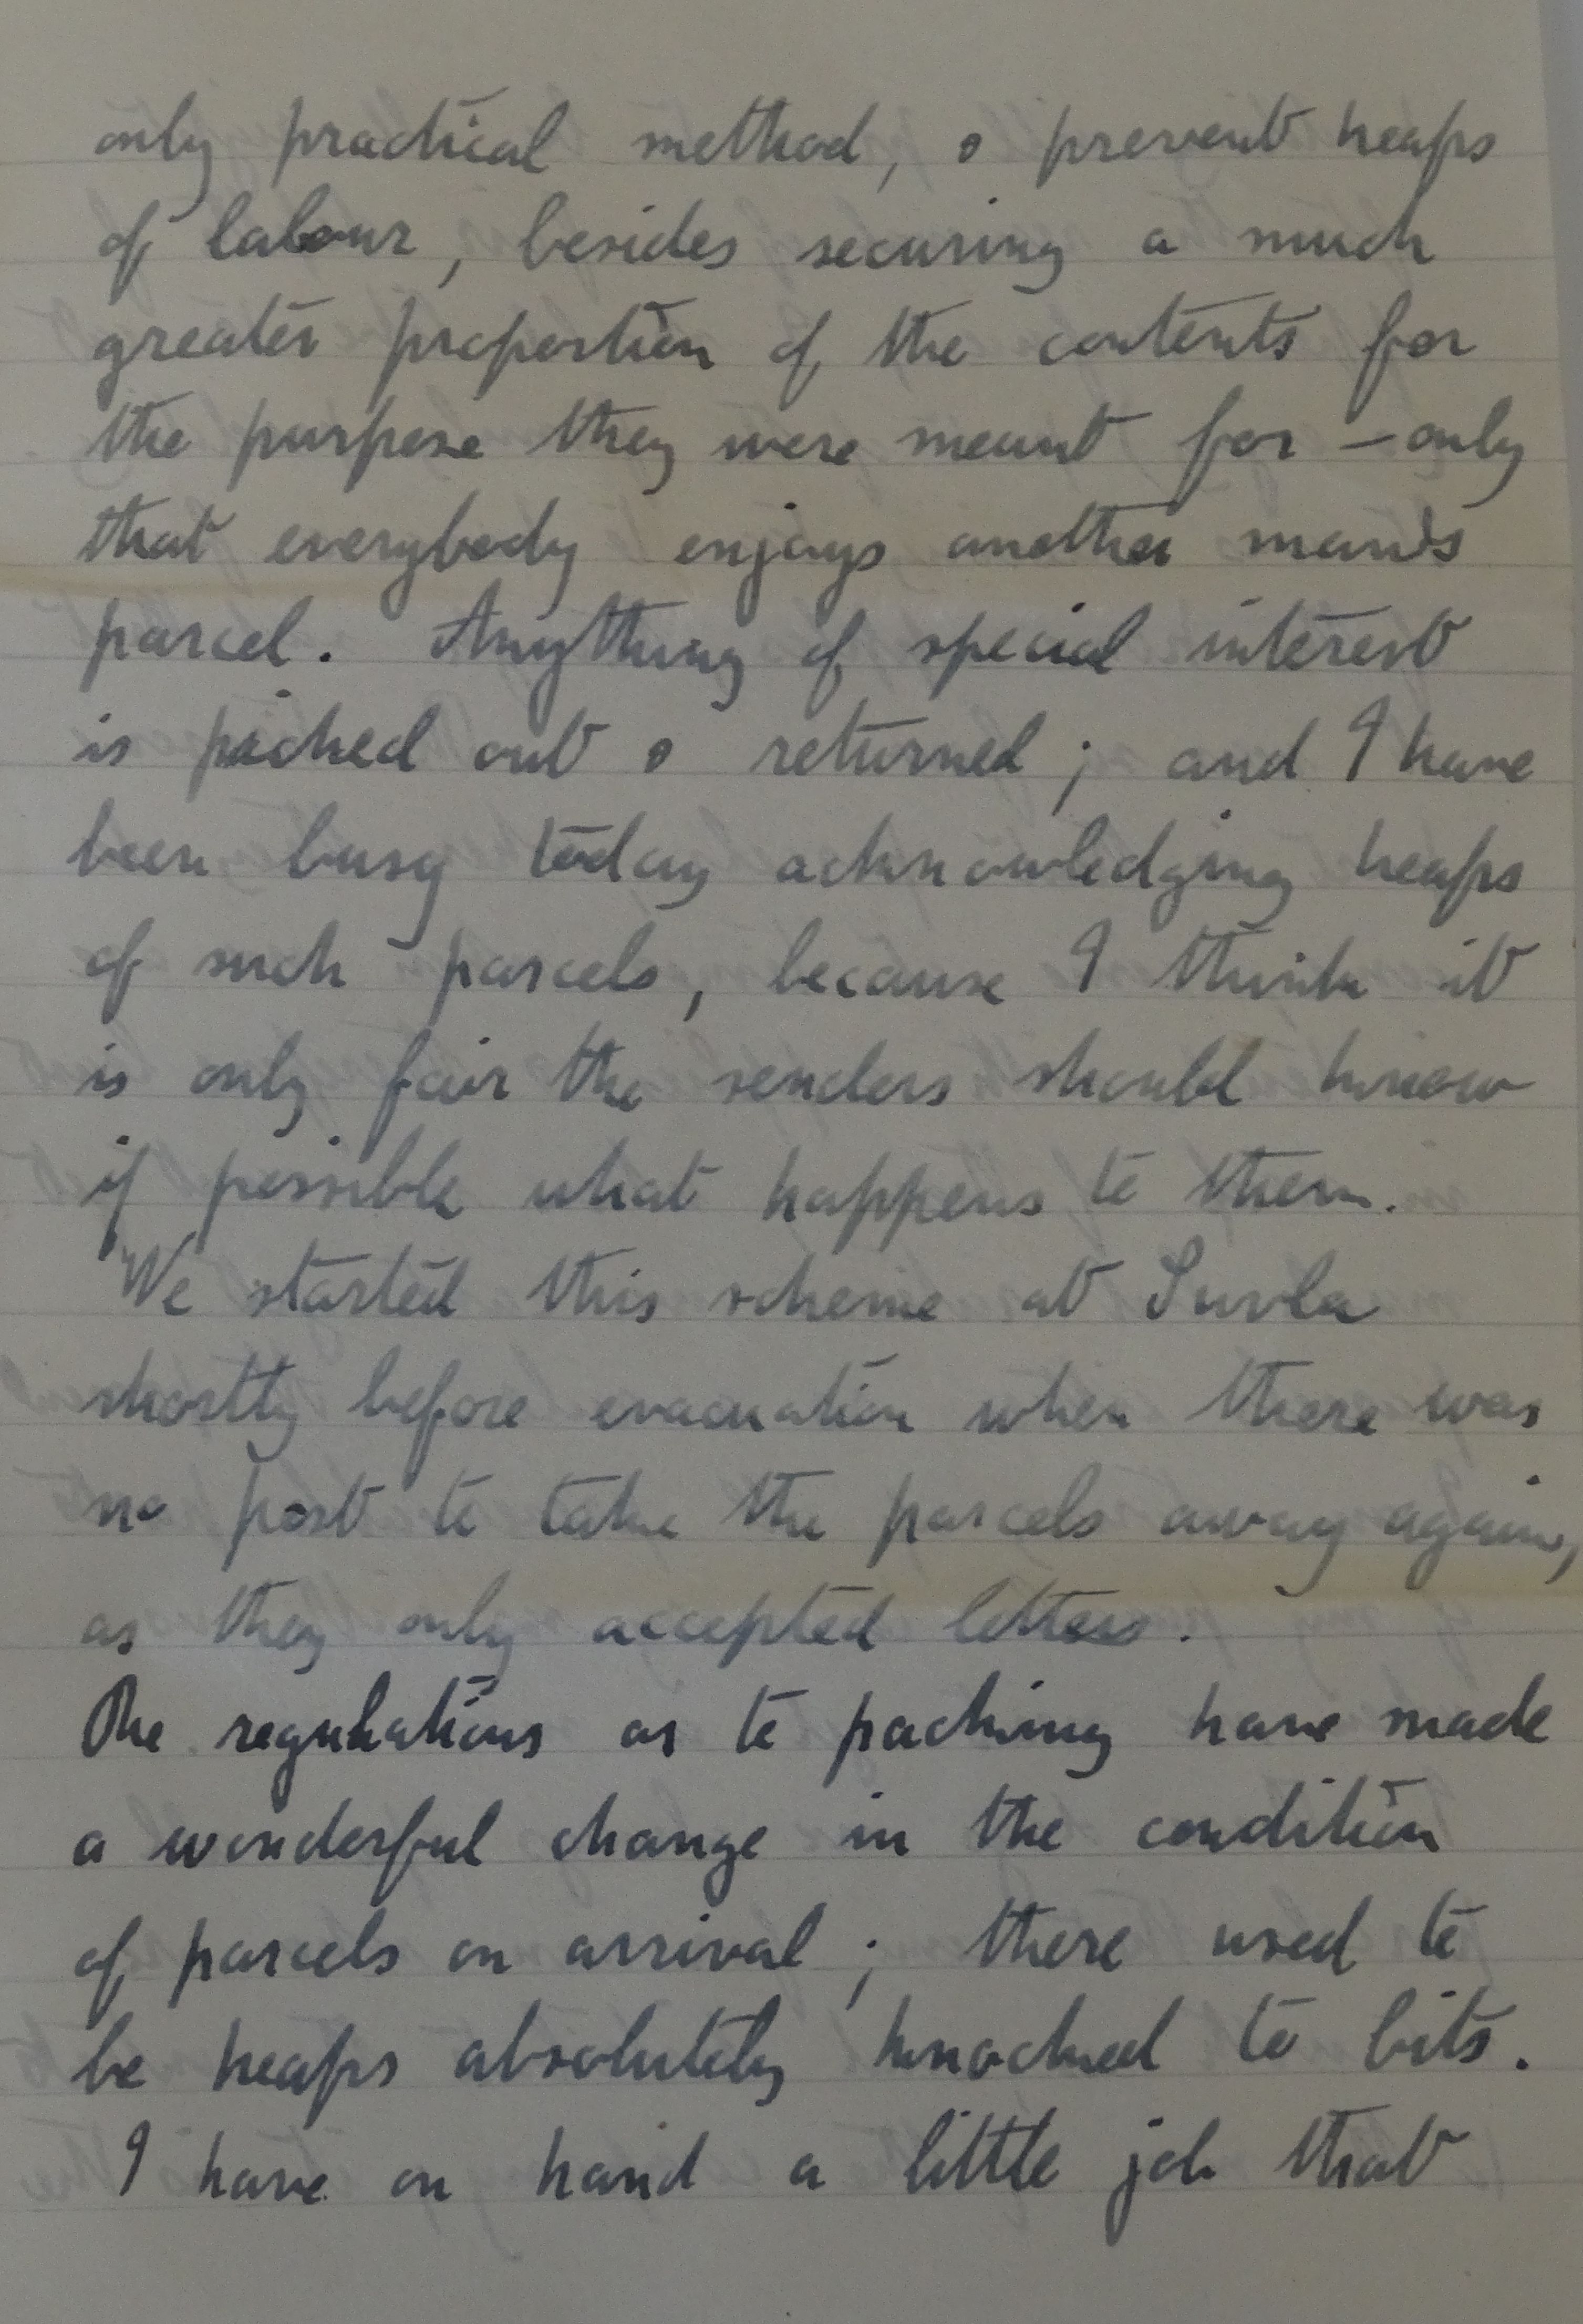 only practical method, & prevent heaps
of labour, besides securing a much
greater proportion of the contents for
the purpose they were meant for – only
that everybody enjoys another man's
parcel. Anything of special interest
is picked out & returned; and I have
been busy today acknowledging heaps
of such parcels, because I think it
is only fair the senders should know
if possible what happens to them.
We started this scheme at Suvla
shortly before evacuation when there was
no post to take the parcels away again,
as they only accepted letters.
The regulations as to packing have made
a wonderful change in the condition
of parcels on arrival; there used to
be heaps absolutely knocked to bits.
I have on hand a little job that